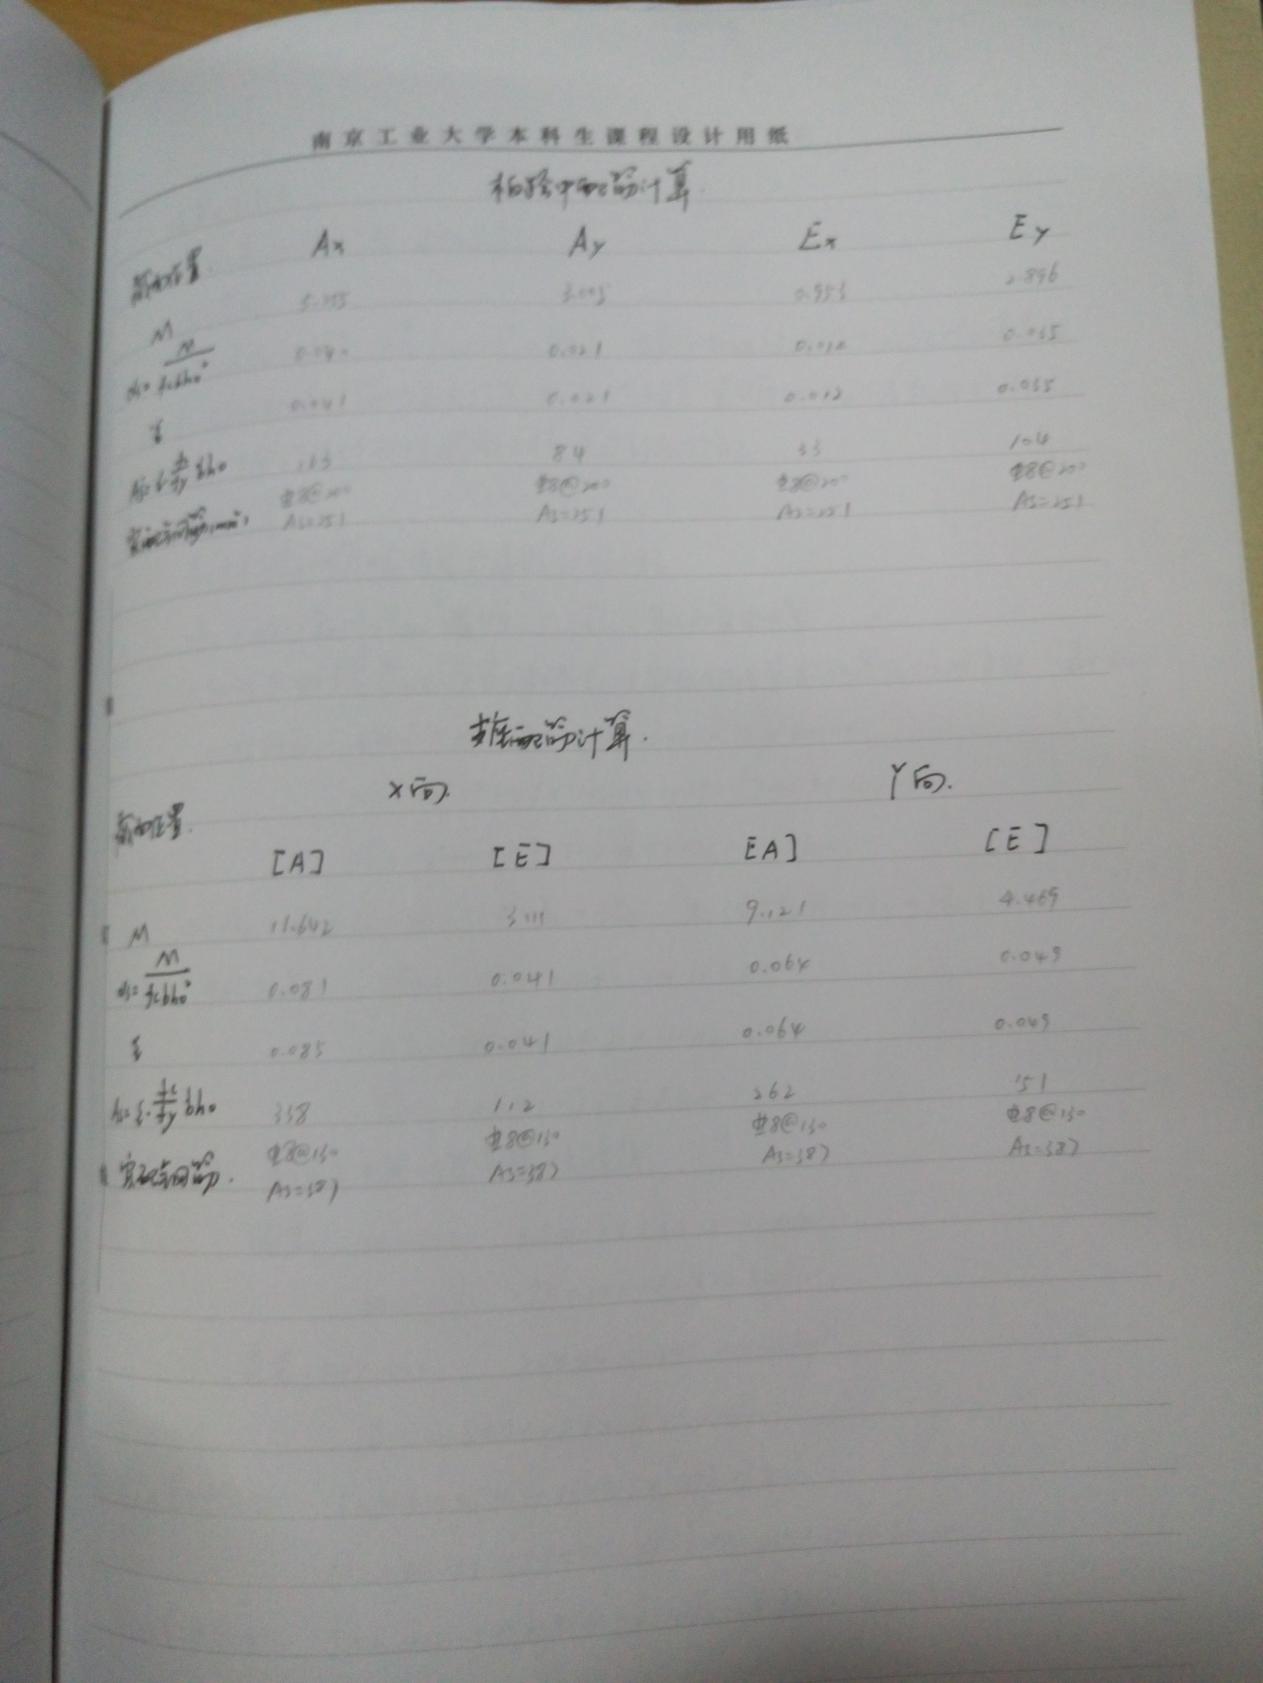 南京工业大学本科生课程设计用纸
板跨中配筋计算.
截面位置. Ax Ay Ex Ey
M 3.003 0.953 2.896
αs=M/fcbh₀² 0.040 0.021 0.012 0.035
ξ 0.041 0.021 0.012 0.035
As=ξ·fc/fy·bh₀ 163 84 104
实配钢筋(mm²) ⌀8@200 ⌀8@200 ⌀8@200 ⌀8@200
As=251 As=251 As=251 As=251
支座配筋计算.
X向. Y向.
截面位置.
[A] [E] [A] [E]
M 11.642 9.121 4.469
αs=M/fcbh₀² 0.081 0.041 0.064 0.049
ξ 0.085 0.041 0.064 0.049
As=ξ·fc/fy·bh₀ 338 262 151
实配钢筋. ⌀8@130 ⌀8@130 ⌀8@130 ⌀8@130
As=387 As=387 As=387 As=387